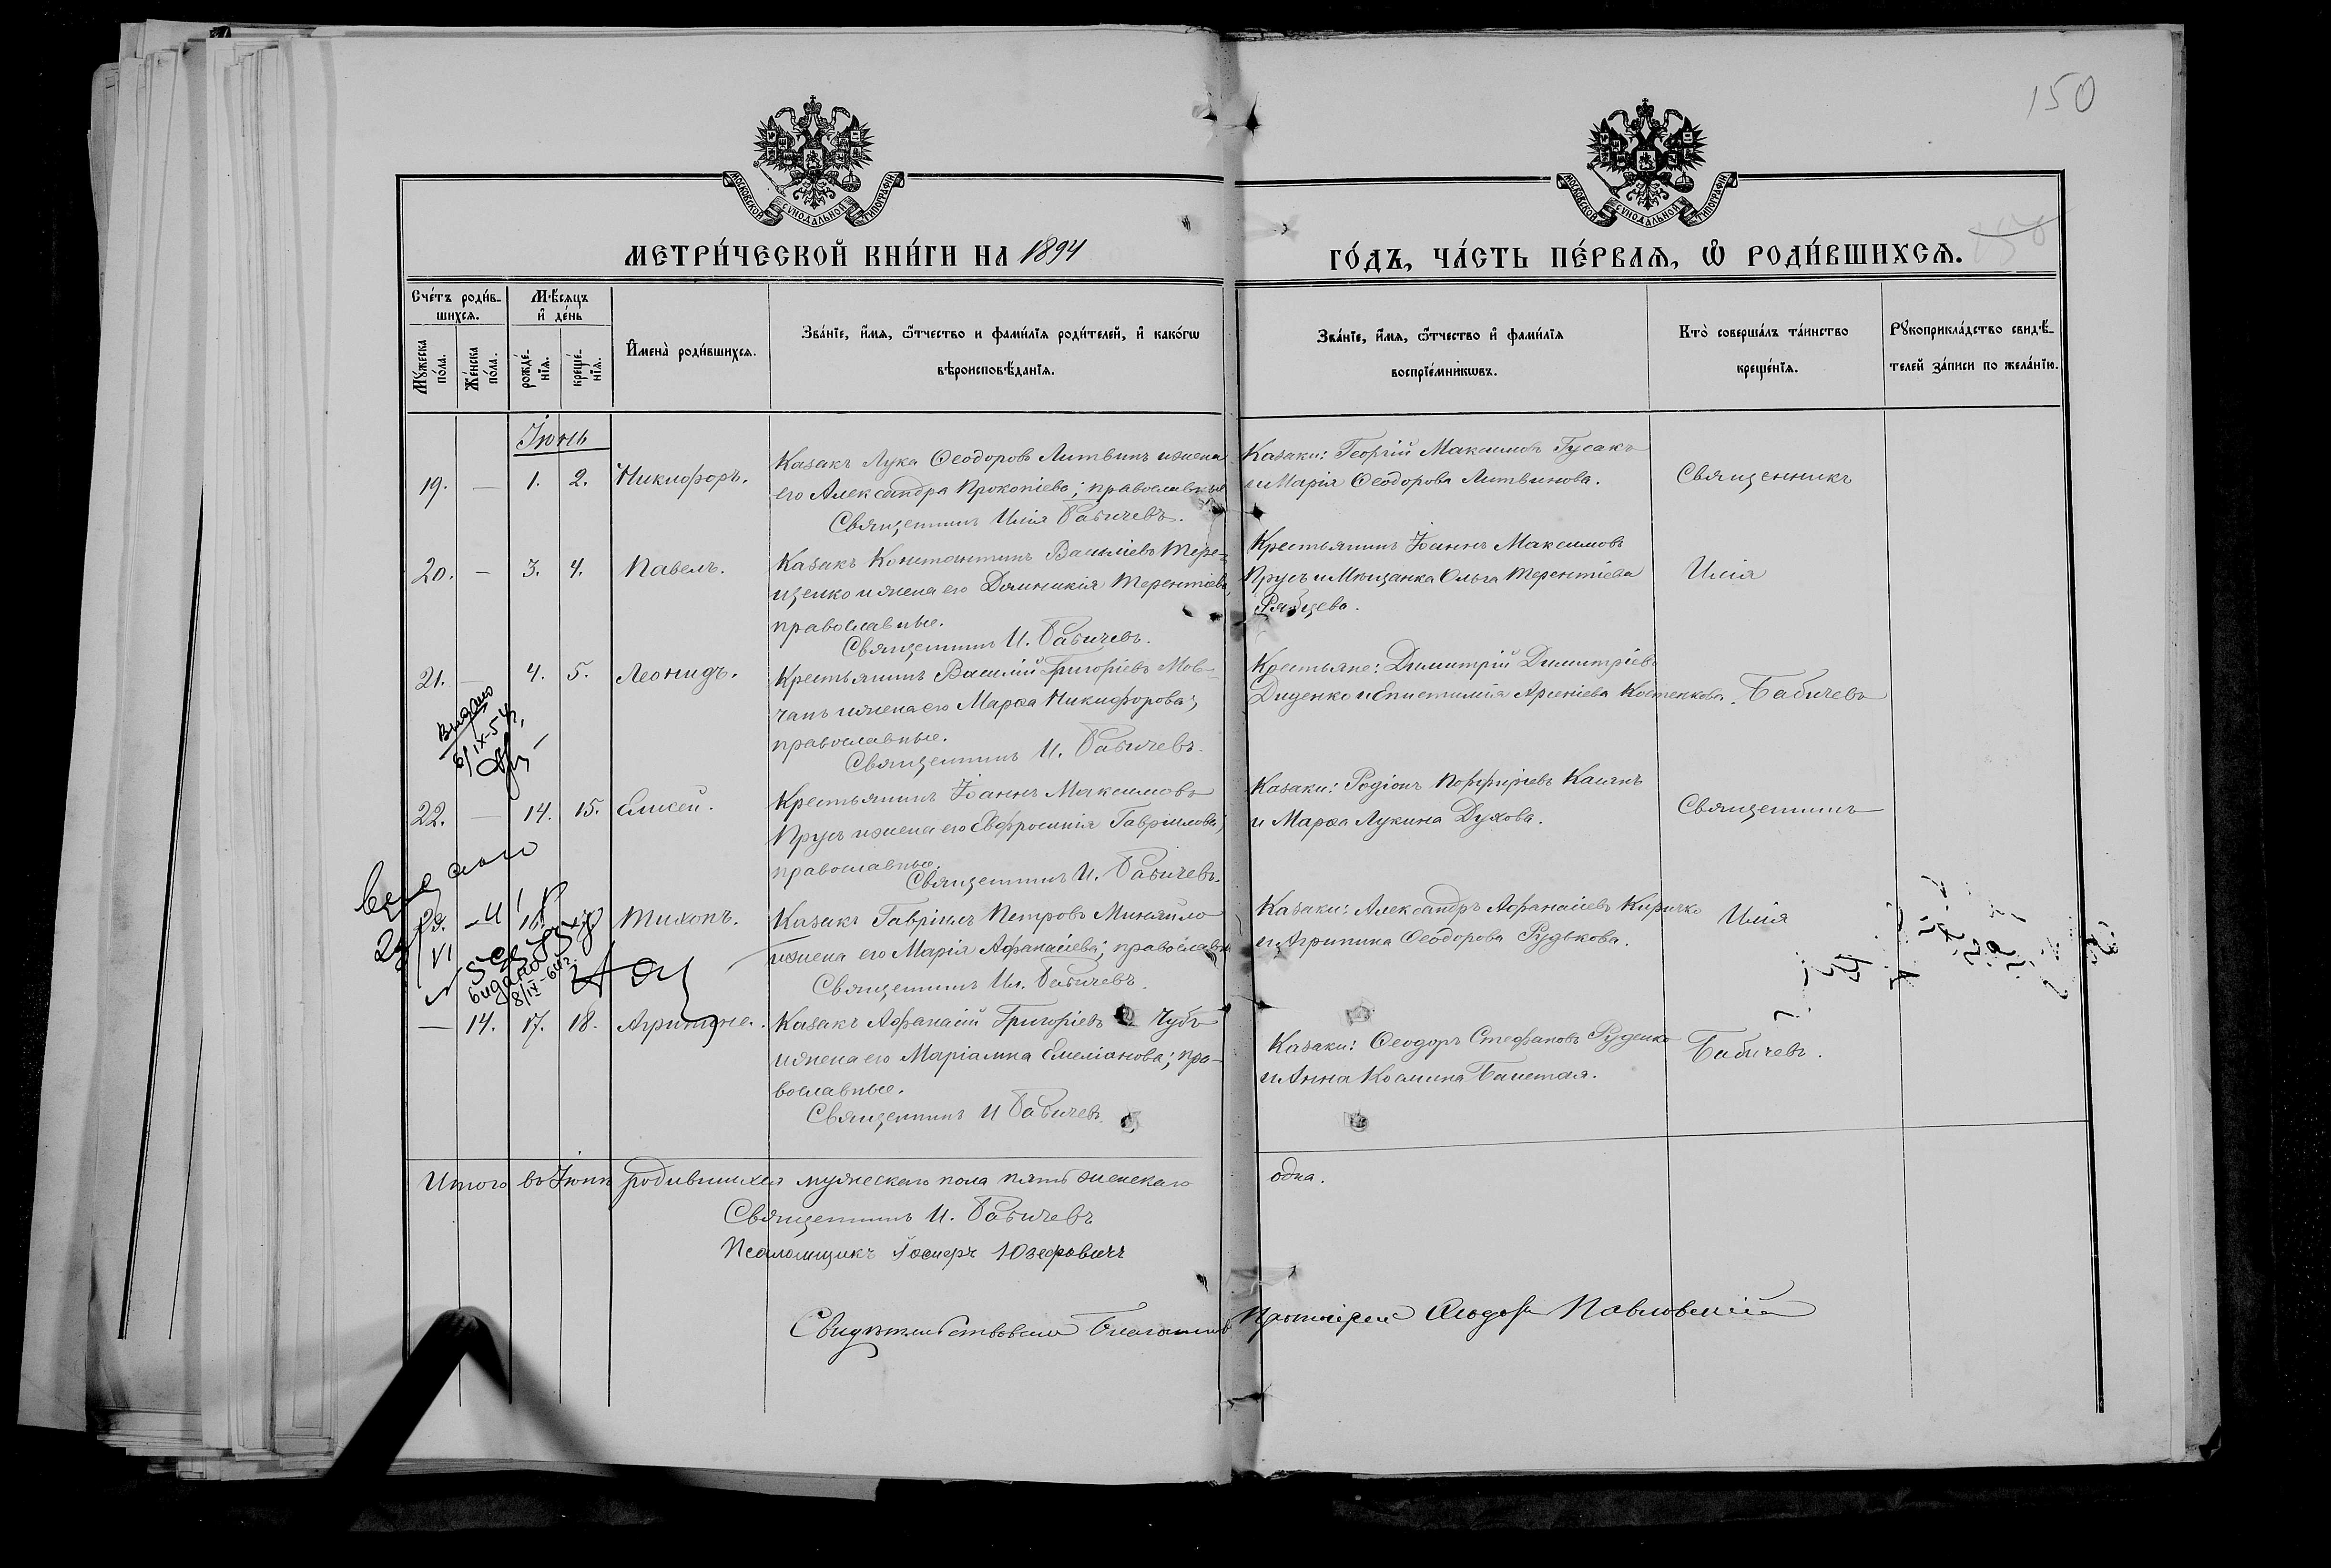 150
МОСКОВСКОЙ СѴНОДАЛЬНОЙ ТИПОГРАФІИ
МОСКОВСКОЙ СѴНОДАЛЬНОЙ ТИПОГРАФІИ
МЕТРИ́ЧЕСКОЙ КНИ́ГИ НА 1894
ГО́ДЪ, ЧА́СТЬ ПЕ́РВАѦ, Ѽ РОДИ́ВШИХСѦ.
Сче́тъ роди́в-
шихсѧ.
Мꙋ́жеска
по́ла.
Же́нска
по́ла.
Мѣ́сѧцъ
и҆ де́нь
рожде́-
нїѧ.
креще́-
нїѧ.
И҆мена̀ роди́вшихсѧ.
Зва́нїе, и҆́мѧ, ѻ҆́тчество и фами́лїѧ роди́телей, и҆ како́гѡ
вѣроисповѣ́данїѧ.
Зва́нїе, и҆́мѧ, ѻ҆́тчество и҆ фами́лїѧ
воспрїе́мникѡвъ.
Кто̀ соверша́лъ та́инство
креще́нїѧ.
Рꙋкоприкла́дство свидѣ́-
телей за́писи по жела́нїю.
Іюнь
19. — 1. 2. Никифоръ.
Казакъ Лука Ѳеодоровъ Литвинъ и жена
его Александра Прокопіева; православные
Священникъ Илія Бабичевъ.
Казаки: Георгій Максимовъ Гусакъ
и Марія Ѳеодорова Литвинова.
Священникъ
20. — 3. 4. Павелъ.
Казакъ Константинъ Василіевъ Тере-
щенко и жена его Домникія Терентіева,
православные.
Священникъ И. Бабичевъ.
Крестьянинъ Іоаннъ Максимовъ
Прусъ и Мѣщанка Ольга Терентіева
Рябцева.
Илія
21. — 4. 5. Леонидъ.
Крестьянинъ Василій Григоріевъ Мов-
чанъ и жена его Марѳа Никифорова;
православные.
Священникъ И. Бабичевъ.
Крестьяне: Димитрій Димитріевъ
Диденко и Епистимія Арсеніева Костенкова.
Бабичевъ
Видано
6/IX-54г.
22. — 14. 15. Елисей.
Крестьянинъ Іоаннъ Максимовъ
Прусъ и жена его Евфросинія Гавріилова;
православные.
Священникъ И. Бабичевъ.
Казаки: Родіонъ Порфиріевъ Касянъ
и Марѳа Лукина Духова.
Священникъ
23. 16. Тихонъ.
видано
8/IV-64г.
Казакъ Гавріилъ Петровъ Миняйло
и жена его Марія Аѳанасіева; православн
Священникъ Ил. Бабичевъ.
Казаки: Александръ Аѳанасіевъ Киричко
и Агрипина Ѳеодорова Рудькова.
Илія
— 14. 17. 18. Агрипина.
Казакъ Аѳанасій Григоріевъ Чубъ
и жена его Маріамна Емеліанова; пра-
вославные.
Священникъ И Бабичевъ.
Казаки: Ѳеодоръ Стефановъ Руденко
и Анна Космина
Бабичевъ.
Итого въ Іюнѣ родившихся мужескаго пола пять женскаго
одна.
Священникъ И. Бабичевъ
Псаломщикъ Іосифъ Юзефовичъ
Свидѣтельствовалъ Благочин
Протоіерей Ѳеодоръ Павловскій